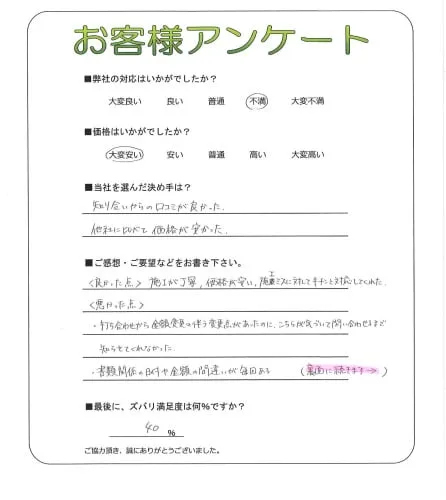 お客様アンケート
■弊社の対応はいかがでしたか?
大変良い 良い 普通 不満 大変不満
■価格はいかがでしたか?
大変安い 安い 普通 高い 大変高い
■当社を選んだ決め手は?
知り合いからの口コミが良かった.
他社に比べて価格が安かった.
■ご感想・ご要望などをお書き下さい。
<良かった点> 施工が丁寧,価格が安い,施工ミスに対してキチンと対応してくれた.
<悪かった点>
・打ち合わせから金額変更の伴う変更点があったのに,こちらが気づいて問い合わせるまで
知らせてくれなかった.
・書類関係の日付や金額の間違いが毎回ある (裏面に続きます→)
■最後に、ズバリ満足度は何%ですか?
40 %
ご協力頂き、誠にありがとうございました。